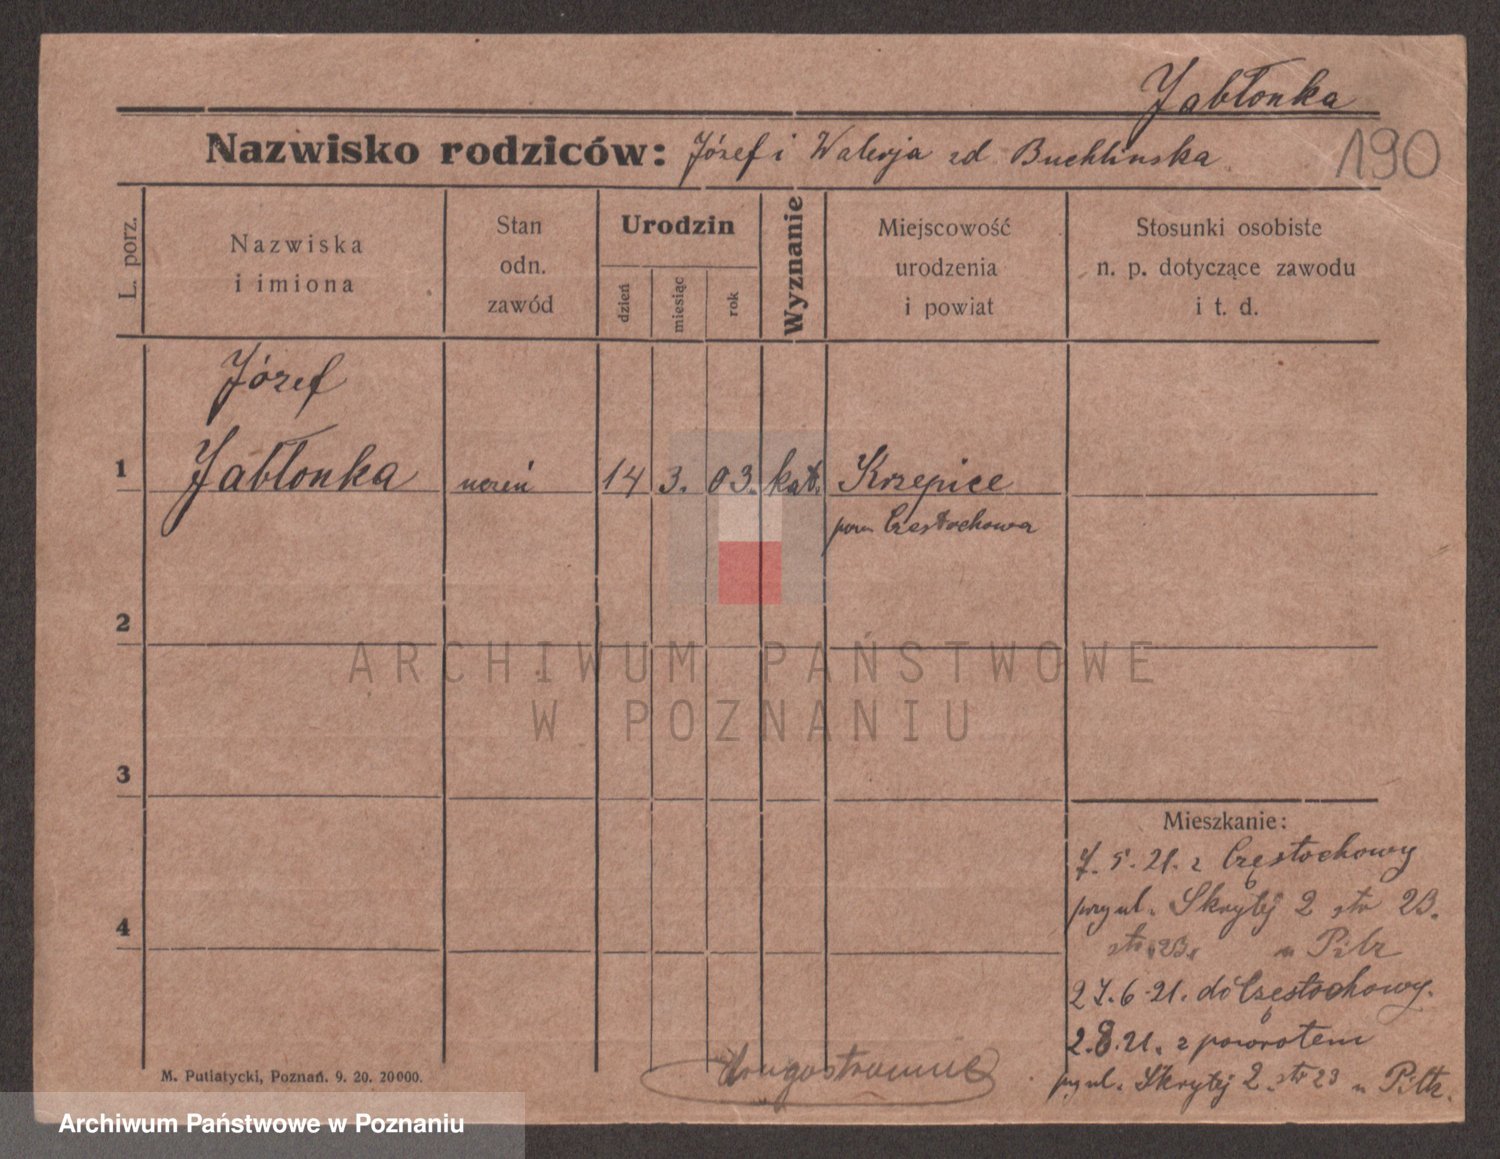 Jabłonka
Nazwisko rodziców: Józef i Walerja zd Buchlinska
190
L. porz.
Nazwiska
i imiona
Stan
odn.
zawód
Urodzin
dzień
miesiąc
rok
Wyznanie
Miejscowość
urodzenia
i powiat
Stosunki osobiste
n. p. dotyczące zawodu
i t. d.
Józef
1 Jabłonka uczeń 14 3. 03. kat. Krzepice
pow Częstochowa
2
ARCHIWUM PAŃSTWOWE
W POZNANIU
3
Mieszkanie:
7. 5. 21. z Częstochowy
przy ul. Skrytej 2 str 23.
4
str. 23.
27.6.21. do Częstochowy.
2.8.21. z powrotem
ul. Skrytej 2. str 23
drugostronnie
M. Putiatycki, Poznań. 9. 20. 20000.
Archiwum Państwowe w Poznaniu